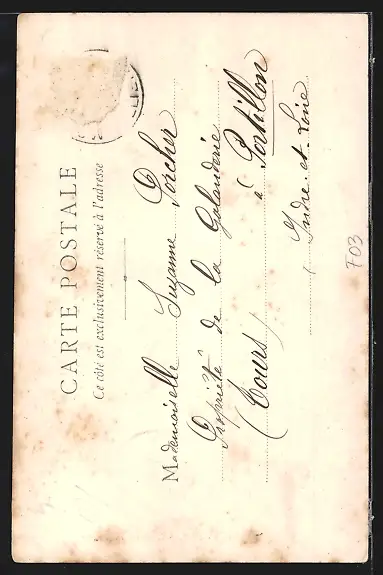 CARTE POSTALE
Ce côté est exclusivement réservé à l'adresse
Mademoiselle Suzanne Porcher
Propriété de la Galanderie
à Portillon
(Tours)
Indre-et-Loire
F03